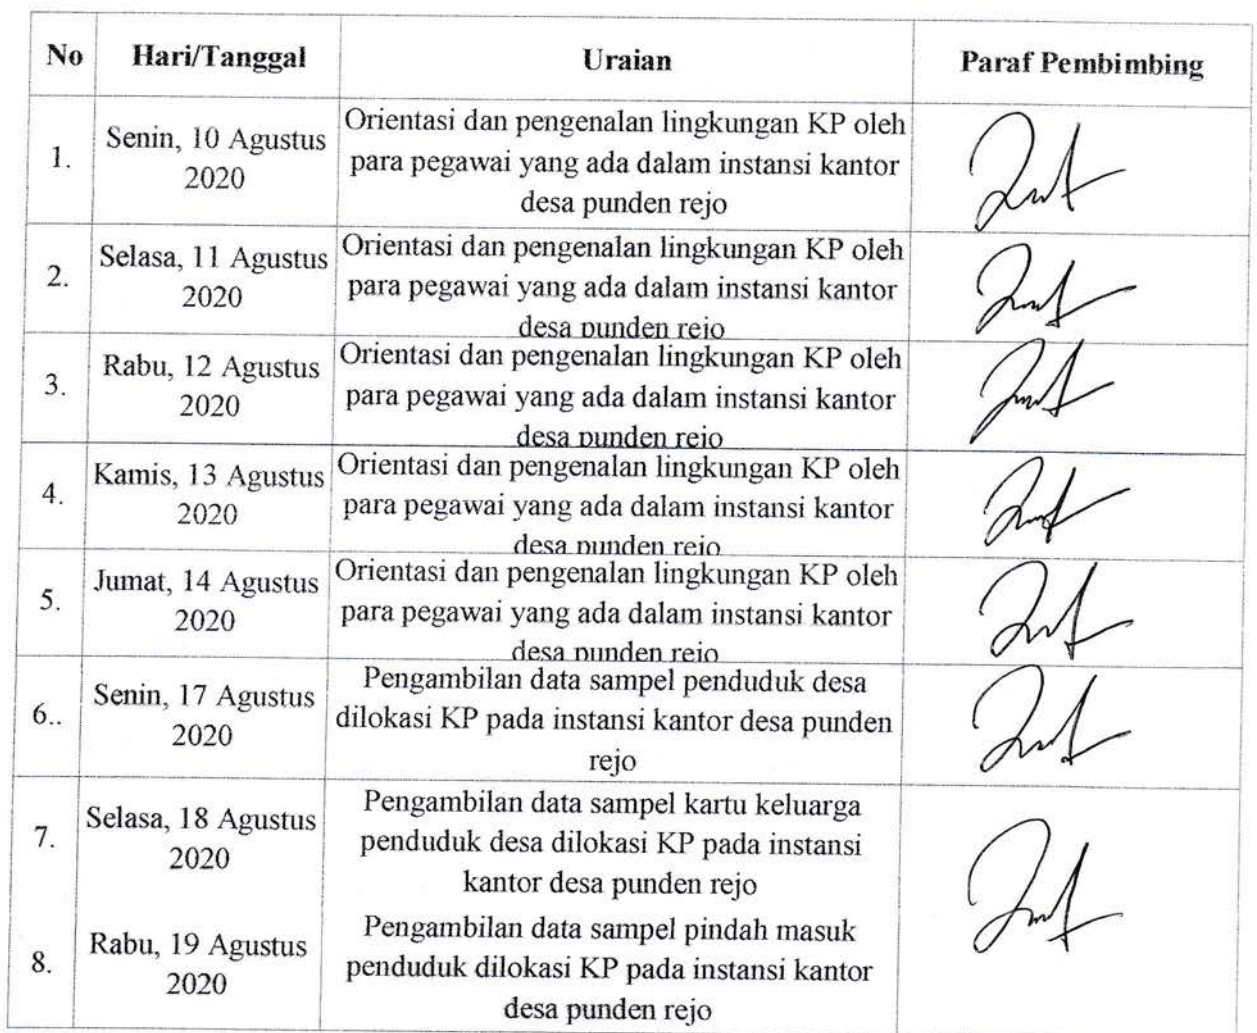 No Hari/Tanggal Uraian Paraf Pembimbing
1.
Senin, 10 Agustus
2020
Orientasi dan pengenalan lingkungan KP oleh
para pegawai yang ada dalam instansi kantor
desa punden rejo
2.
Selasa, 11 Agustus
2020
Orientasi dan pengenalan lingkungan KP oleh
para pegawai yang ada dalam instansi kantor
desa punden rejo
3.
Rabu, 12 Agustus
2020
Orientasi dan pengenalan lingkungan KP oleh
para pegawai yang ada dalam instansi kantor
desa punden rejo
4.
Kamis, 13 Agustus
2020
Orientasi dan pengenalan lingkungan KP oleh
para pegawai yang ada dalam instansi kantor
desa punden rejo
5.
Jumat, 14 Agustus
2020
Orientasi dan pengenalan lingkungan KP oleh
para pegawai yang ada dalam instansi kantor
desa punden rejo
6..
Senin, 17 Agustus
2020
Pengambilan data sampel penduduk desa
dilokasi KP pada instansi kantor desa punden
rejo
7.
Selasa, 18 Agustus
2020
Pengambilan data sampel kartu keluarga
penduduk desa dilokasi KP pada instansi
kantor desa punden rejo
8.
Rabu, 19 Agustus
2020
Pengambilan data sampel pindah masuk
penduduk dilokasi KP pada instansi kantor
desa punden rejo